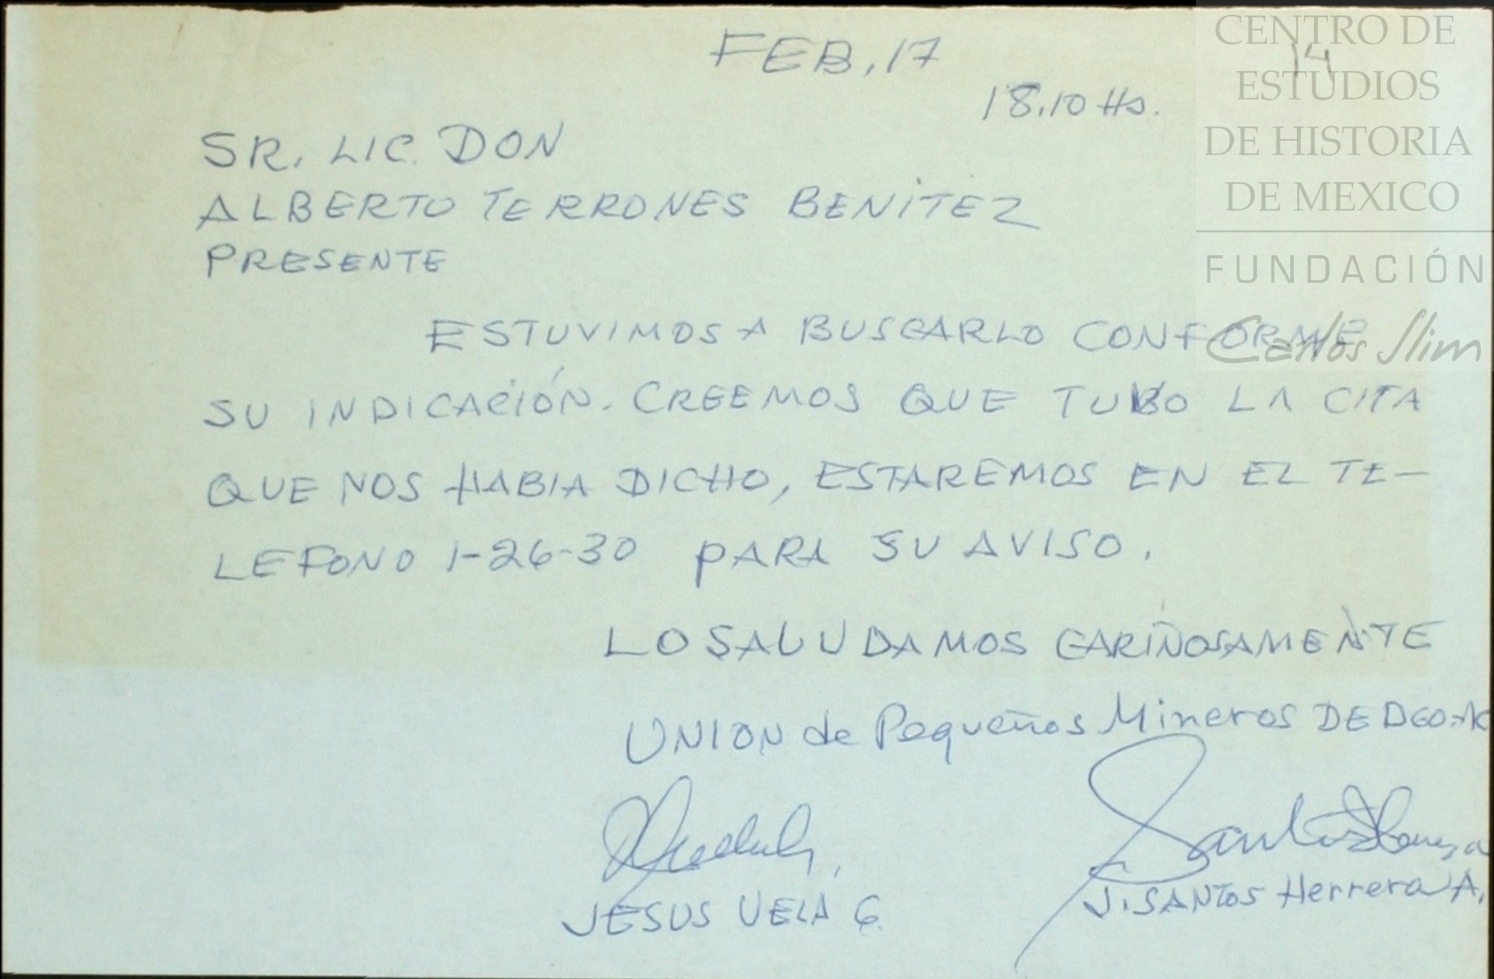 FEB, 17
14
18.10 Hs.
SR. LIC. DON
ALBERTO TERRONES BENITEZ
PRESENTE
ESTUVIMOS A BUSCARLO CONFORME
SU INDICACIÓN. CREEMOS QUE TUBO LA CITA
QUE NOS HABIA DICHO, ESTAREMOS EN EL TE-
LEFONO 1-26-30 PARA SU AVISO.
LO SALUDAMOS CARIÑOSAMENTE
UNION de Pequeños Mineros DE DGO.
JESUS VELA G
J. SANTOS Herrera A.
CENTRO DE
ESTUDIOS
DE HISTORIA
DE MEXICO
FUNDACIÓN
Carlos Slim